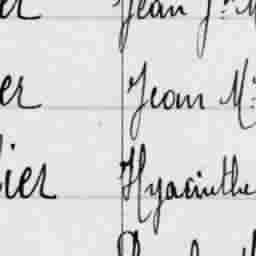 er Jean J.
er Jean M.
ier Hyacinthe